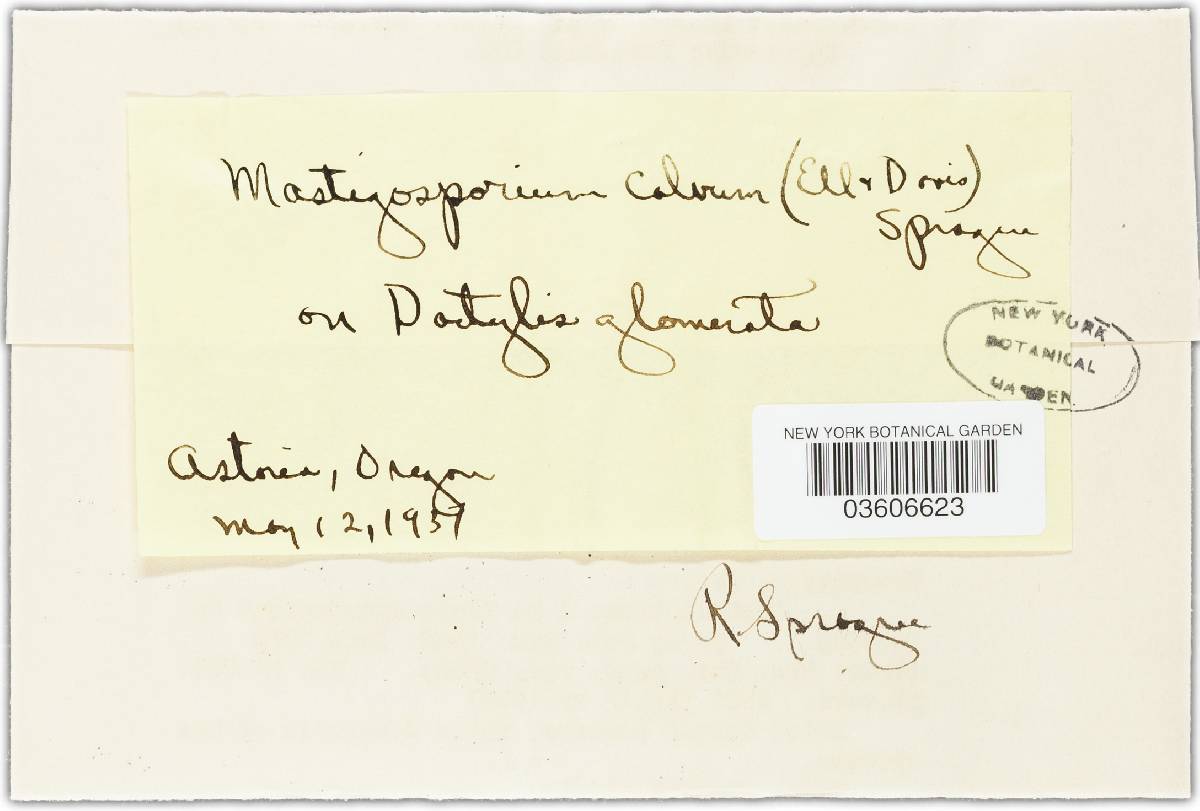 Mastigosporium calvum (Ell & Davis)
Sprague
on Dactylis glomerata
NEW YORK
BOTANICAL
GARDEN
Astoria, Oregon
May 12, 1937
NEW YORK BOTANICAL GARDEN
03606623
R. Sprague